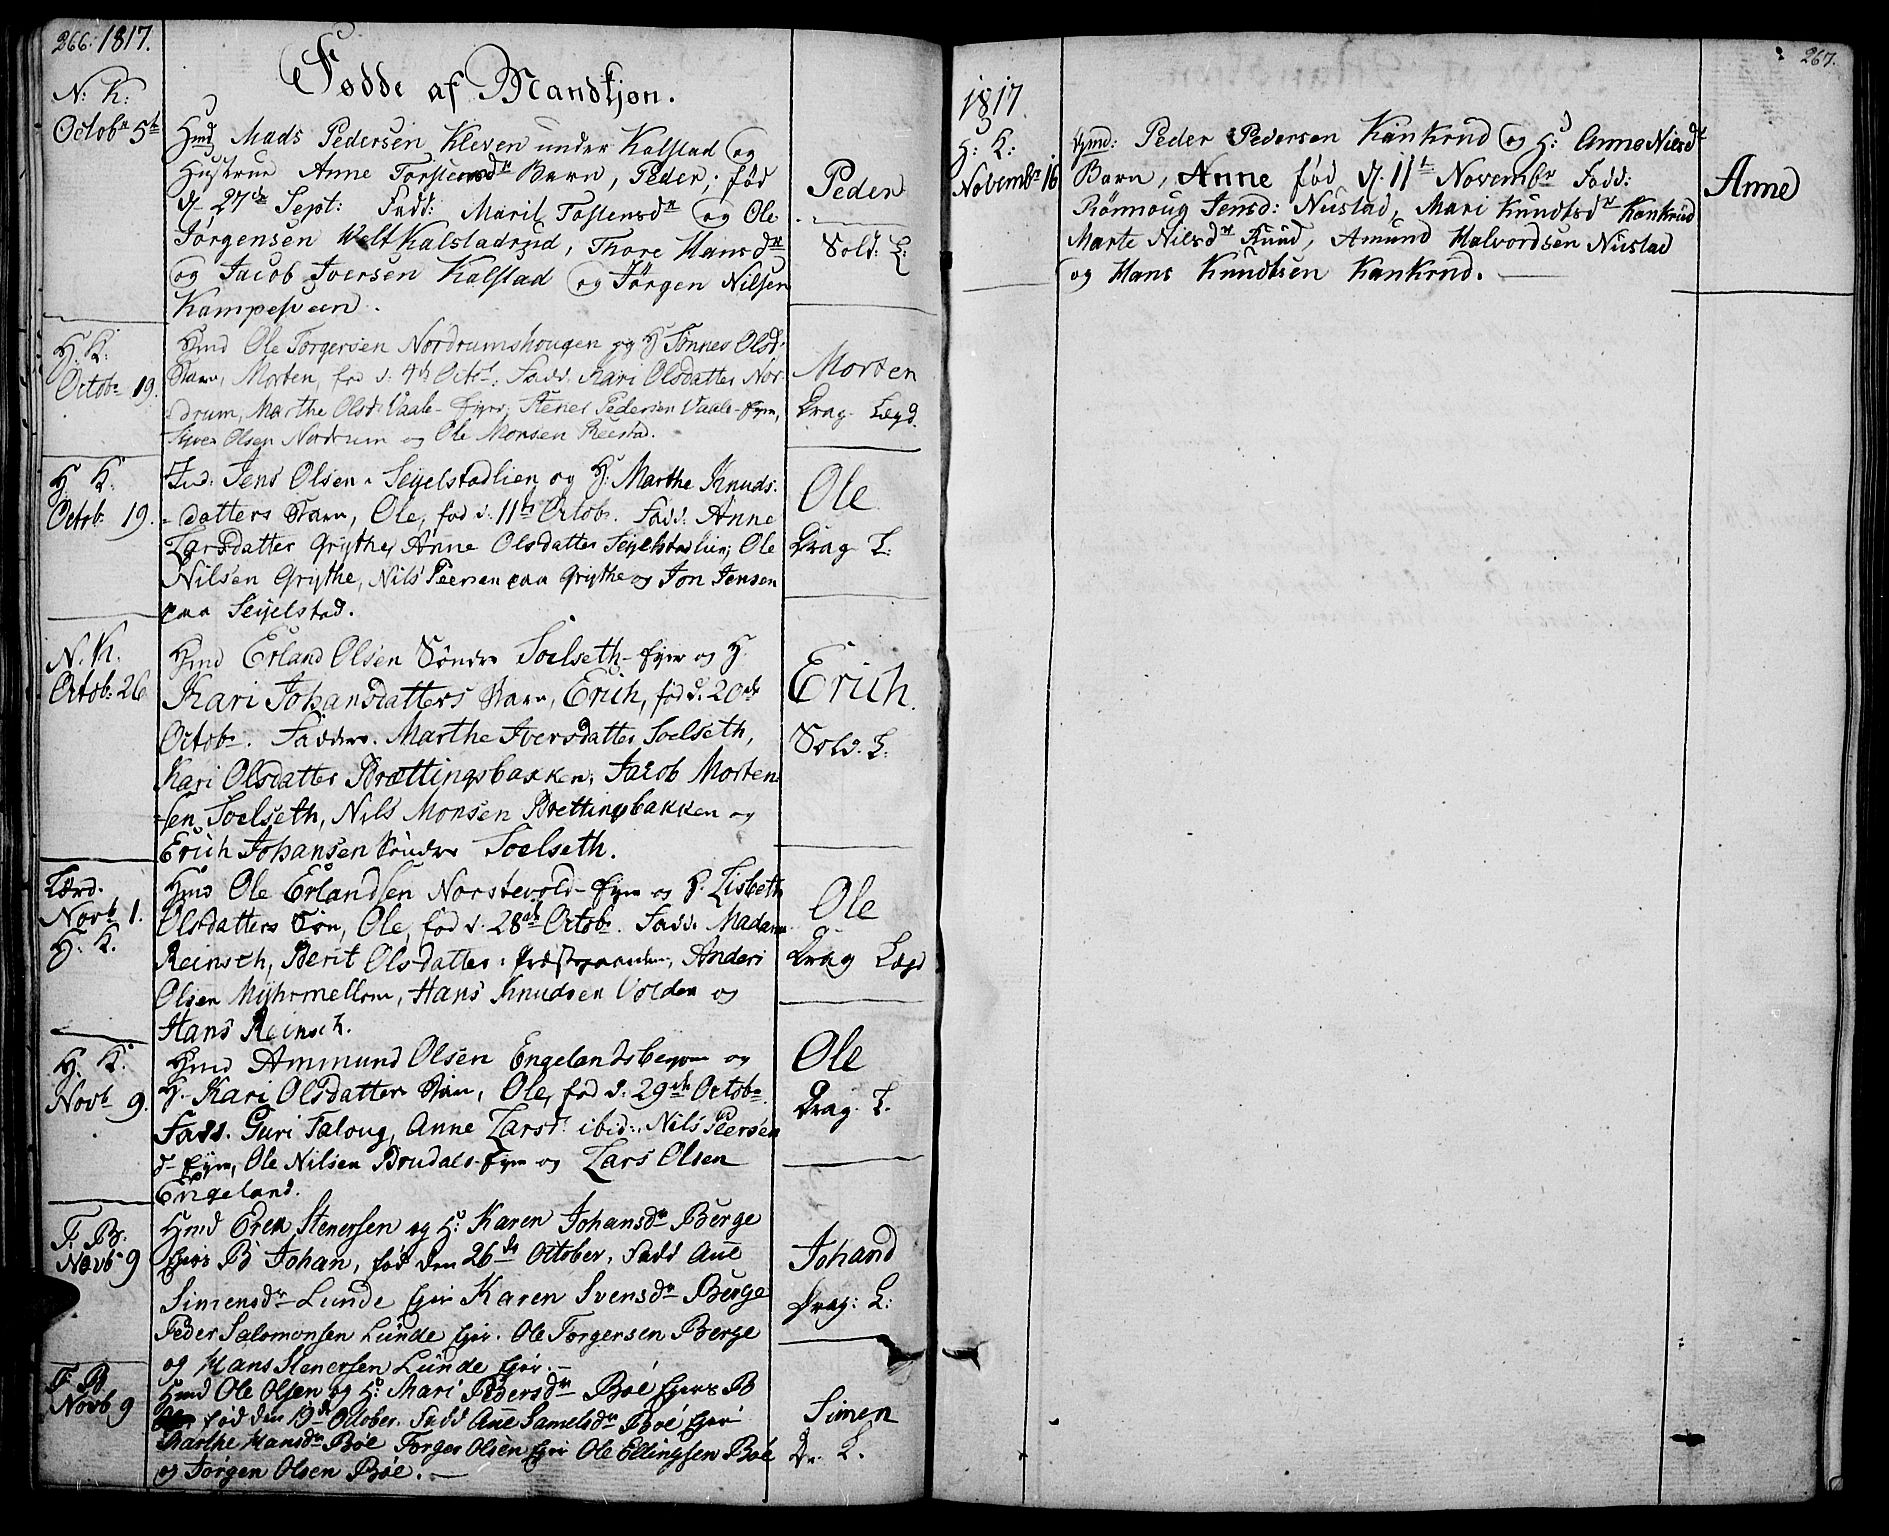 266: 1817.
Fødde af Mandkjøn.
N: K:
Octobr 5te
Hmd Mads Pedersen Kleven under Kalstad og
Hustrue Anne Torstensdr Barn, Peder, fød
d. 27de Sept: Fadd: Marit Tostensdr og Ole
Jørgensen Kalstadrud, Thore Hansdr
og Jacob Iversen Kalstad og Jørgen Nilsen
Kampesveen.
Peder
Sold: L:
H. K:
Octobr 19.
Hmd Ole Torgersen Nordrumshougen og H Tønnes Olsd:
Barn, Morten, fød d. 4de Octb. Fadd. Kari Olsdatter Nor-
drum, Marthe Olsd: Vaale-Eyer, Stener Pedersen Vaale-Eyer,
Syver Olsen Nordrum og Ole Monsen Reestad.
Morten
Drag Lægd.
H. K:
Octob: 19.
Ind: Jens Olsen Seyelstadlien og H: Marthe Knuds-
datters Barn, Ole, fød d. 11te Octob. Fadd: Anne
Larsdatter Grythe, Anne Olsdatter Seyelstadlien, Ole
Nilsen Grythe, Nils Peersen paa Grythe og Jon Jensen
paa Seyelstad.
Ole
Drag L:
N. K.
Octob: 26
Hmd Erland Olsen Søndre Soelseth-Eyer og H.
Kari Johansdatters Barn, Erich, fød d. 20de
Octobr. Faddere. Marthe Iversdatter Soelseth,
Kari Olsdatter Brættingsbakken, Jacob Morten-
sen Soelseth, Nils Monsen Brettingsbakken og
Erich Johansen Søndre Soelseth.
Erich.
Sold. L:
Lørd.
Novb 1.
H. K.
Hmd Ole Erlandsen Norstevold-Eyer og H. Lisbeth
Olsdatters Søn, Ole, fød d. 28de Octobr. Fadd. Madame
Reinsch, Berit Olsdatter i Præstegaarden, Anders
Olsen Myhrmellom, Hans Knudsen Volden og
Hans Reinsch.
Ole
Drag Lægd
H. K.
Novb 9.
Hmd Ammund Olsen Engelandsbegom og
H. Kari Olsdatters Barn, Ole, fød d. 29de Octobr.
Fadd. Guri Taloug, Anne Larsd: ibid:, Nils Peersen
d- Eyer, Ole Nilsen Brudals-Eyer og Lars Olsen
Engeland.
Ole
Drag. L.
F. B:
Novb 9
Hmd Even Stenersen og H: Karen Johansdr Berge
Eyers B Johan, fød den 26de October, Fadd Aue
Simensdr Lunde Ejer Karen Svensdr Berge
Peder Salomonsen Lunde Ejer. Ole Torgersen Berge
og Hans Stenersen Lunde Ejer.-
Johand
Drag: L:
F. B
Novb 9
Hmd Ole Olsen og H: Mari Pedersdr Bøe Ejers B
fød den 19de October. Fadd Aue Samelsdr Bøe Ejer
Marthe Hansdr Bøe Torger Olsen Ejer Ole Ellingsen Bøe
og Jørgen Olsen Bøe.
Simen
Dr. L.
267.
1817
H: K:
Novembr 16
Hmd: Peder Pedersen Kankrud og H: Anne Nilsdr
Barn, Anne fød d. 11te Novembr Fadd:
Rønnoug Jensd: Niustad, Mari Knudtsdr Kankrud
Marte Nilsdr Ruud, Amund Halvordsen Niustad
og Hans Knudtsen Kankrud.
Anne